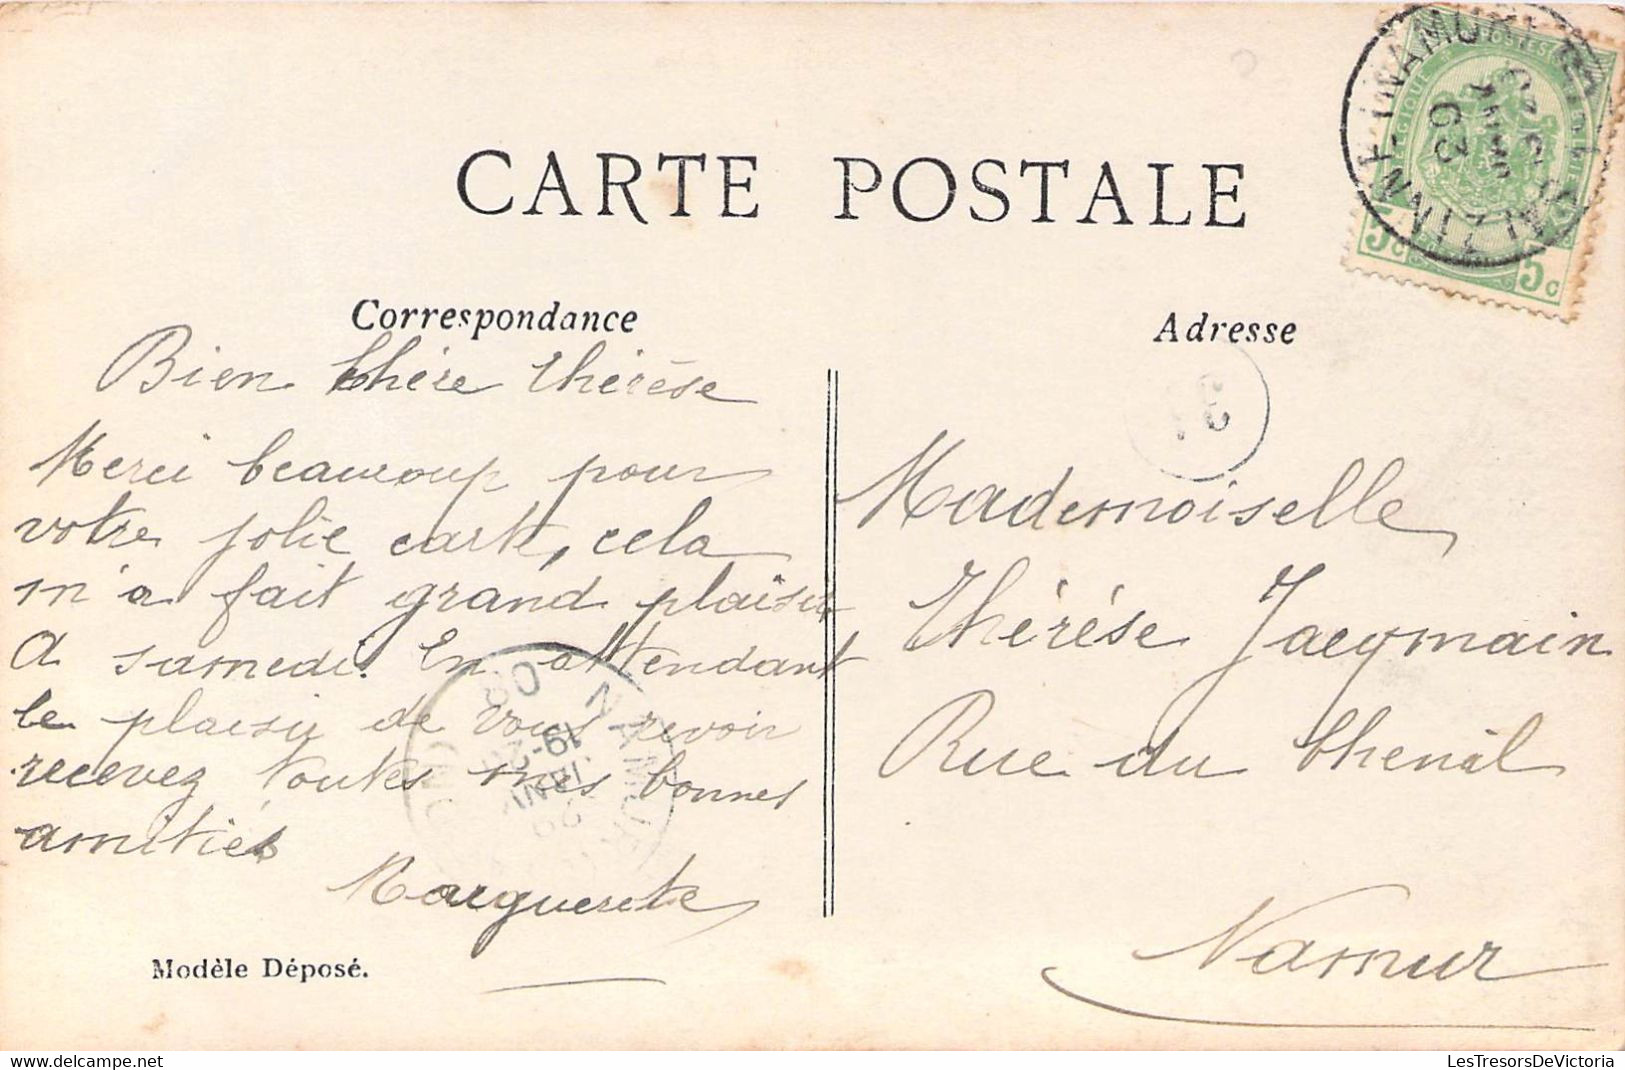 CARTE POSTALE
Correspondance
Bien chère thérèse
Merci beaucoup pour
votre jolie carte, cela
m'a fait grand plaisir
A samedi. En attendant
le plaisir de vous revoir
recevez toutes mes bonnes
amitiés
Marguerite
Modèle Déposé.
Adresse
Mademoiselle
Thérése Jacqmain
Rue du Chenil
Namur
5c 5c
NAMUR
delcampe.net
LesTresorsDeVictoria